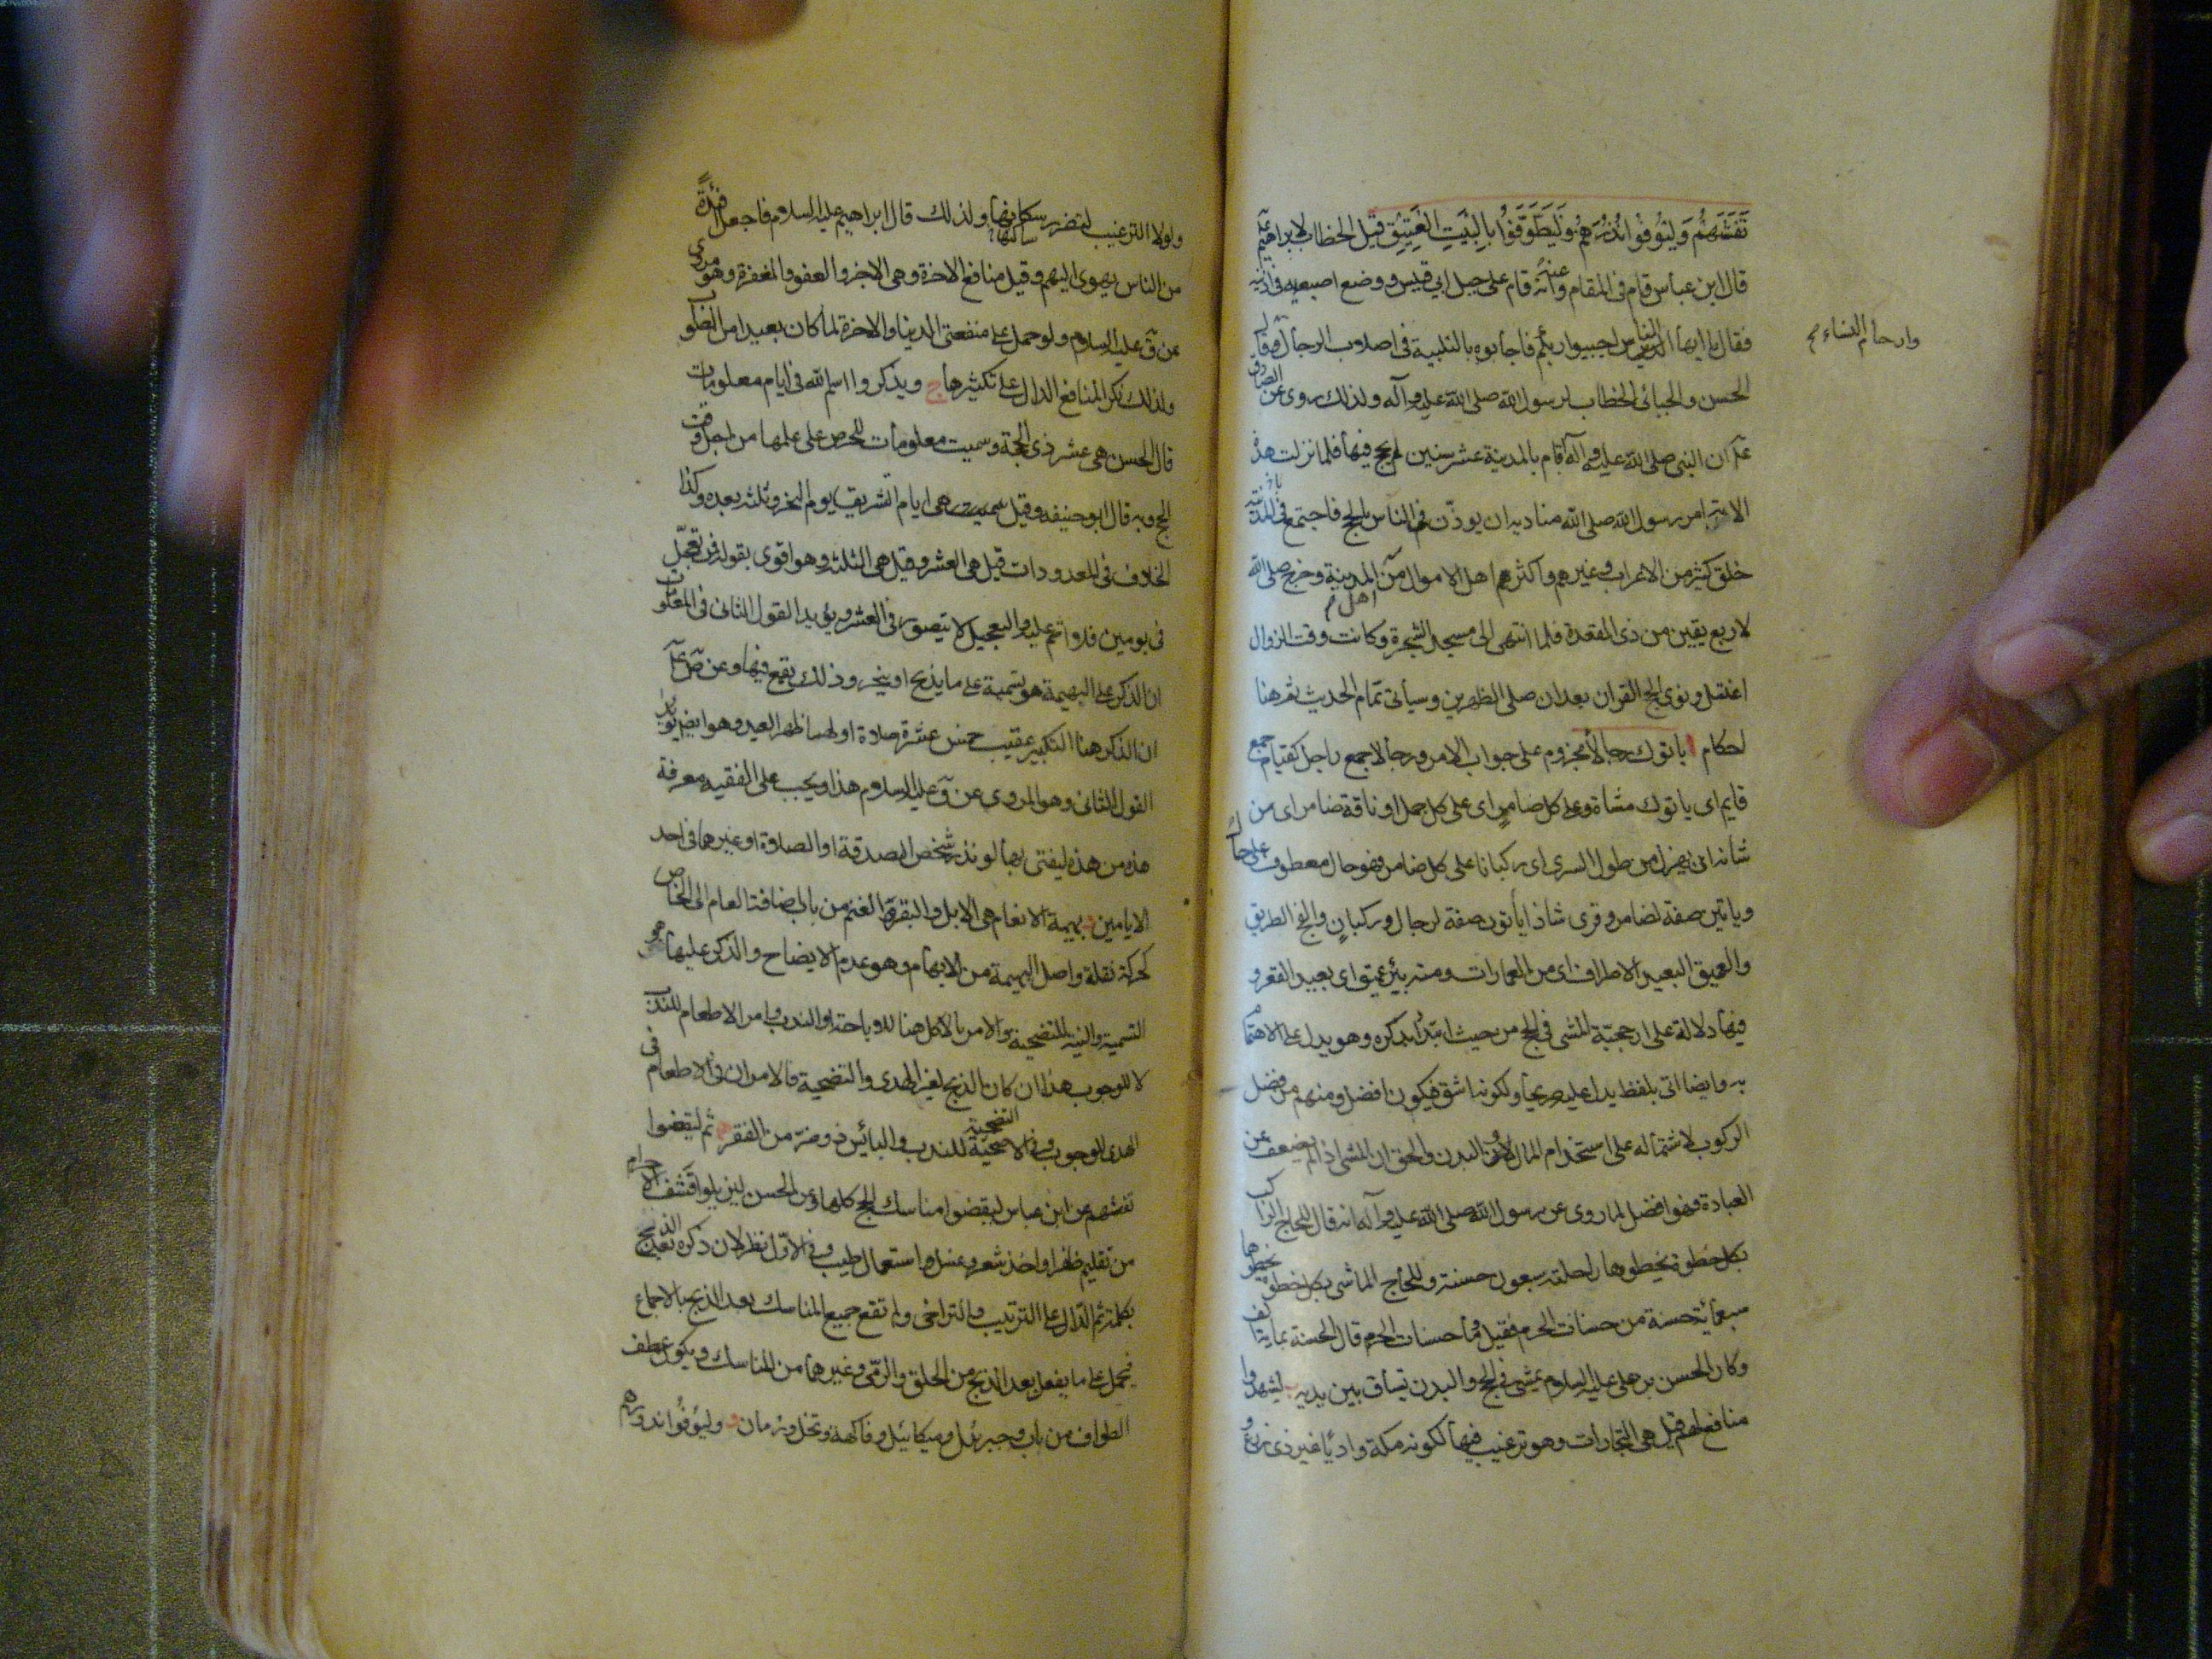 تَفَثَهُمْ وَلْيُوفُوا نُذُورَهُمْ وَلْيَطَّوَّفُوا بِالْبَيْتِ الْعَتِيقِ قيل الخطاب لابراهيم عَلَ
قال ابن عباس قام في المقام وعنه انّه قام على جبل ابي قبيس ووضع اصبعيه في اذنيه
فقال يا ايها الناس اجيبوا ربكم فاجابوه بالتلبية في اصلاب الرجال وقال
وارحام النساء صح
الحسن والجبائي الخطاب لرسول الله صلى الله عليه وآله ولذلك روى عن الصادق
عَلَ ان النبي صلى الله عليه وآله اقام بالمدينة عشر سنين لم يحج فيها فلما نزلت هذه
الاية امر رسول الله صلى الله مناديه ان يوذّن في الناس بالحج فاجتمع في المدينة
خلق كثير من الاعراب وغيرهم واكثرهم اهل الاموال من اهل المدينة وخرج صلى الله
لاربع بقين من ذي القعدة فلما انتهى الى مسجد الشجرة وكانت وقت الزوال
اغتسل ونوى الحج القران بعد ان صلى الظهرين وسيأتي تمام الحديث ثم هنا
احكام ا ياتوك رجالا مجزوم على جواب الامر ورجالا جمع راجل كقيام جمع
قايم اى ياتوك مشاة وعلى كل ضامر اى على كل جمل او ناقة ضامر اى من
شانه ان يهزل من طول السرى اى ركبانا على كل ضامر فهو حال معطوف على حال
وياتين صفة لضامر وقرى شاذا يأتون صفة لرجال وركبان والفج الطريق
والعميق البعيد الاطراف اى من العمارات ومنه بئر عميق اى بعيد القعر و
فيها دلالة على ارجحيّة المشي في الحج من حيث ابتدأ بذكره وهو يدل على الاهتمام
به وايضا اتى بلفظ يدل عليه صريحا ولكونه اشق فيكون افضل ومنهم من فضل
الركوب لاشتماله على استخدام المال والبدن والحق ان المشي اذا لم يضعف عن
العبادة فهو افضل لما روى عن رسول الله صلى الله عليه وآله انه قال للحاج الراكب
بكل خطوة يخطوها راحلته سبعون حسنة وللحاج الماشي بكل خطوة يخطوها
سبعمائة حسنة من حسنات الحرم فقيل وما حسنات الحرم قال الحسنة بمائة الف
وكان الحسن بن علي عليه السلام يمشي في الحج والبدن تساق بين يديه ب ليشهدوا
منافع لهم قيل هي التجارات وهو ترغيب فيها لكونه مكة واديًا غير ذي زرع و
ولولا الترغيب لتضرر سكانها ولذلك قال ابراهيم عليه السلام فاجعل افئدةً
من الناس يهوى اليهم وقيل منافع الاخرة وهي الاجر والعفو والمغفرة وهو مروى
عن ق عليه السلام ولو حمل على منفعتي الدنيا والاخرة لما كان بعيدا من الصواب
ولذلك نكر المنافع الدال على تكثيرها ج ويذكروا اسم الله في ايام معلومات
قال الحسن هي عشر ذي الحجة وسميت معلومات للحرص على علمها من اجل وقت
الحج وبه قال ابو حنيفه وقيل هي ايام التشريق يوم النحر وثلثه بعده وكذا
الخلاف في المعدودات قيل هي العشر وقيل هي الثلثه وهو اقوى بقوله فمن تعجّل
في يومين فلا اثم عليه والتعجيل لا يتصور في العشر ويؤيد القول الثاني في المعلومات
ان الذكر على البهيمة هو تسمية على ما يذبح او ينحر وذلك يقع فيها وعن ص عَلَ
ان الذكر هنا التكبير عقيب خمس عشرة صلاة اولها ظهر العيد وهو ايضا يؤيد
القول الثاني وهو المروى عن ق عليه السلام هذا ويجب على الفقيه معرفة
هذه من هذه ليفتي بها لو نذر شخص الصدقة او الصلاة او غيرهما في احد
الايامين د بهيمة الانعام هي الابل والبقر والغنم من باب اضافة العام الى الخاص
كحركة نقلة واصل البهيمة من الابهام وهو عدم الايضاح والذكر عليها هو
التسمية والنية للتضحية والامر بالاكل هنا للاباحة او الندب وامر الاطعام للندب
لا للوجوب هذا ان كان الذبح لغير الهدى والتضحية فالامران في الاطعام في
الهدى للوجوب وفي التضحية للندب والبائس ذو ضر من الفقر ه ثم ليقضوا
تفثهم عن ابن عباس ليقضوا مناسك الحج كلها وعن الحسن ليزيلوا قشف الاحرام
من تقليم ظفر او اخذ شعر وغسل واستعمال طيب وفي الاوّل نظر لان ذكره بعد الذبح
بكلمة ثم الدّال على الترتيب والتراخي ولم تقع جميع المناسك بعد الذبح بالاجماع
فيحمل على ما يفعل بعد الذبح من الحلق والرّمى وغيرهما من المناسك ويكون عطف
الطواف من باب وجبرئيل وميكائيل وفاكهة ونخل ورمان و وليُوفُوا نذورهم